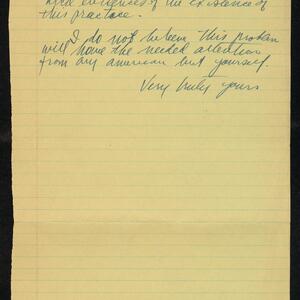 evidences of the existence of
this practice.
I do not believe this problem
will have the needed attention
from any american but yourself.
Very truly yours